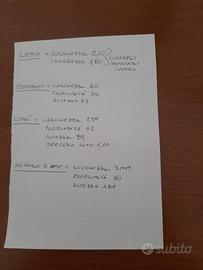 LETTO = LUNGHEZZA 2,10
LARGHEZZA 1,80
COMPRESO
MATERASSO
COMODINI = LARGHEZZA 60
PROFONDITÀ 34
ALTEZZA 62
COMÒ = LARGHEZZA
PROFONDITÀ 62
ALTEZZA 89
SPECCHIO ALTO 1,10
ARMADIO 6 ANTE = LUNGHEZZA 3 mt.
PROFONDITÀ 60
ALTEZZA
subito